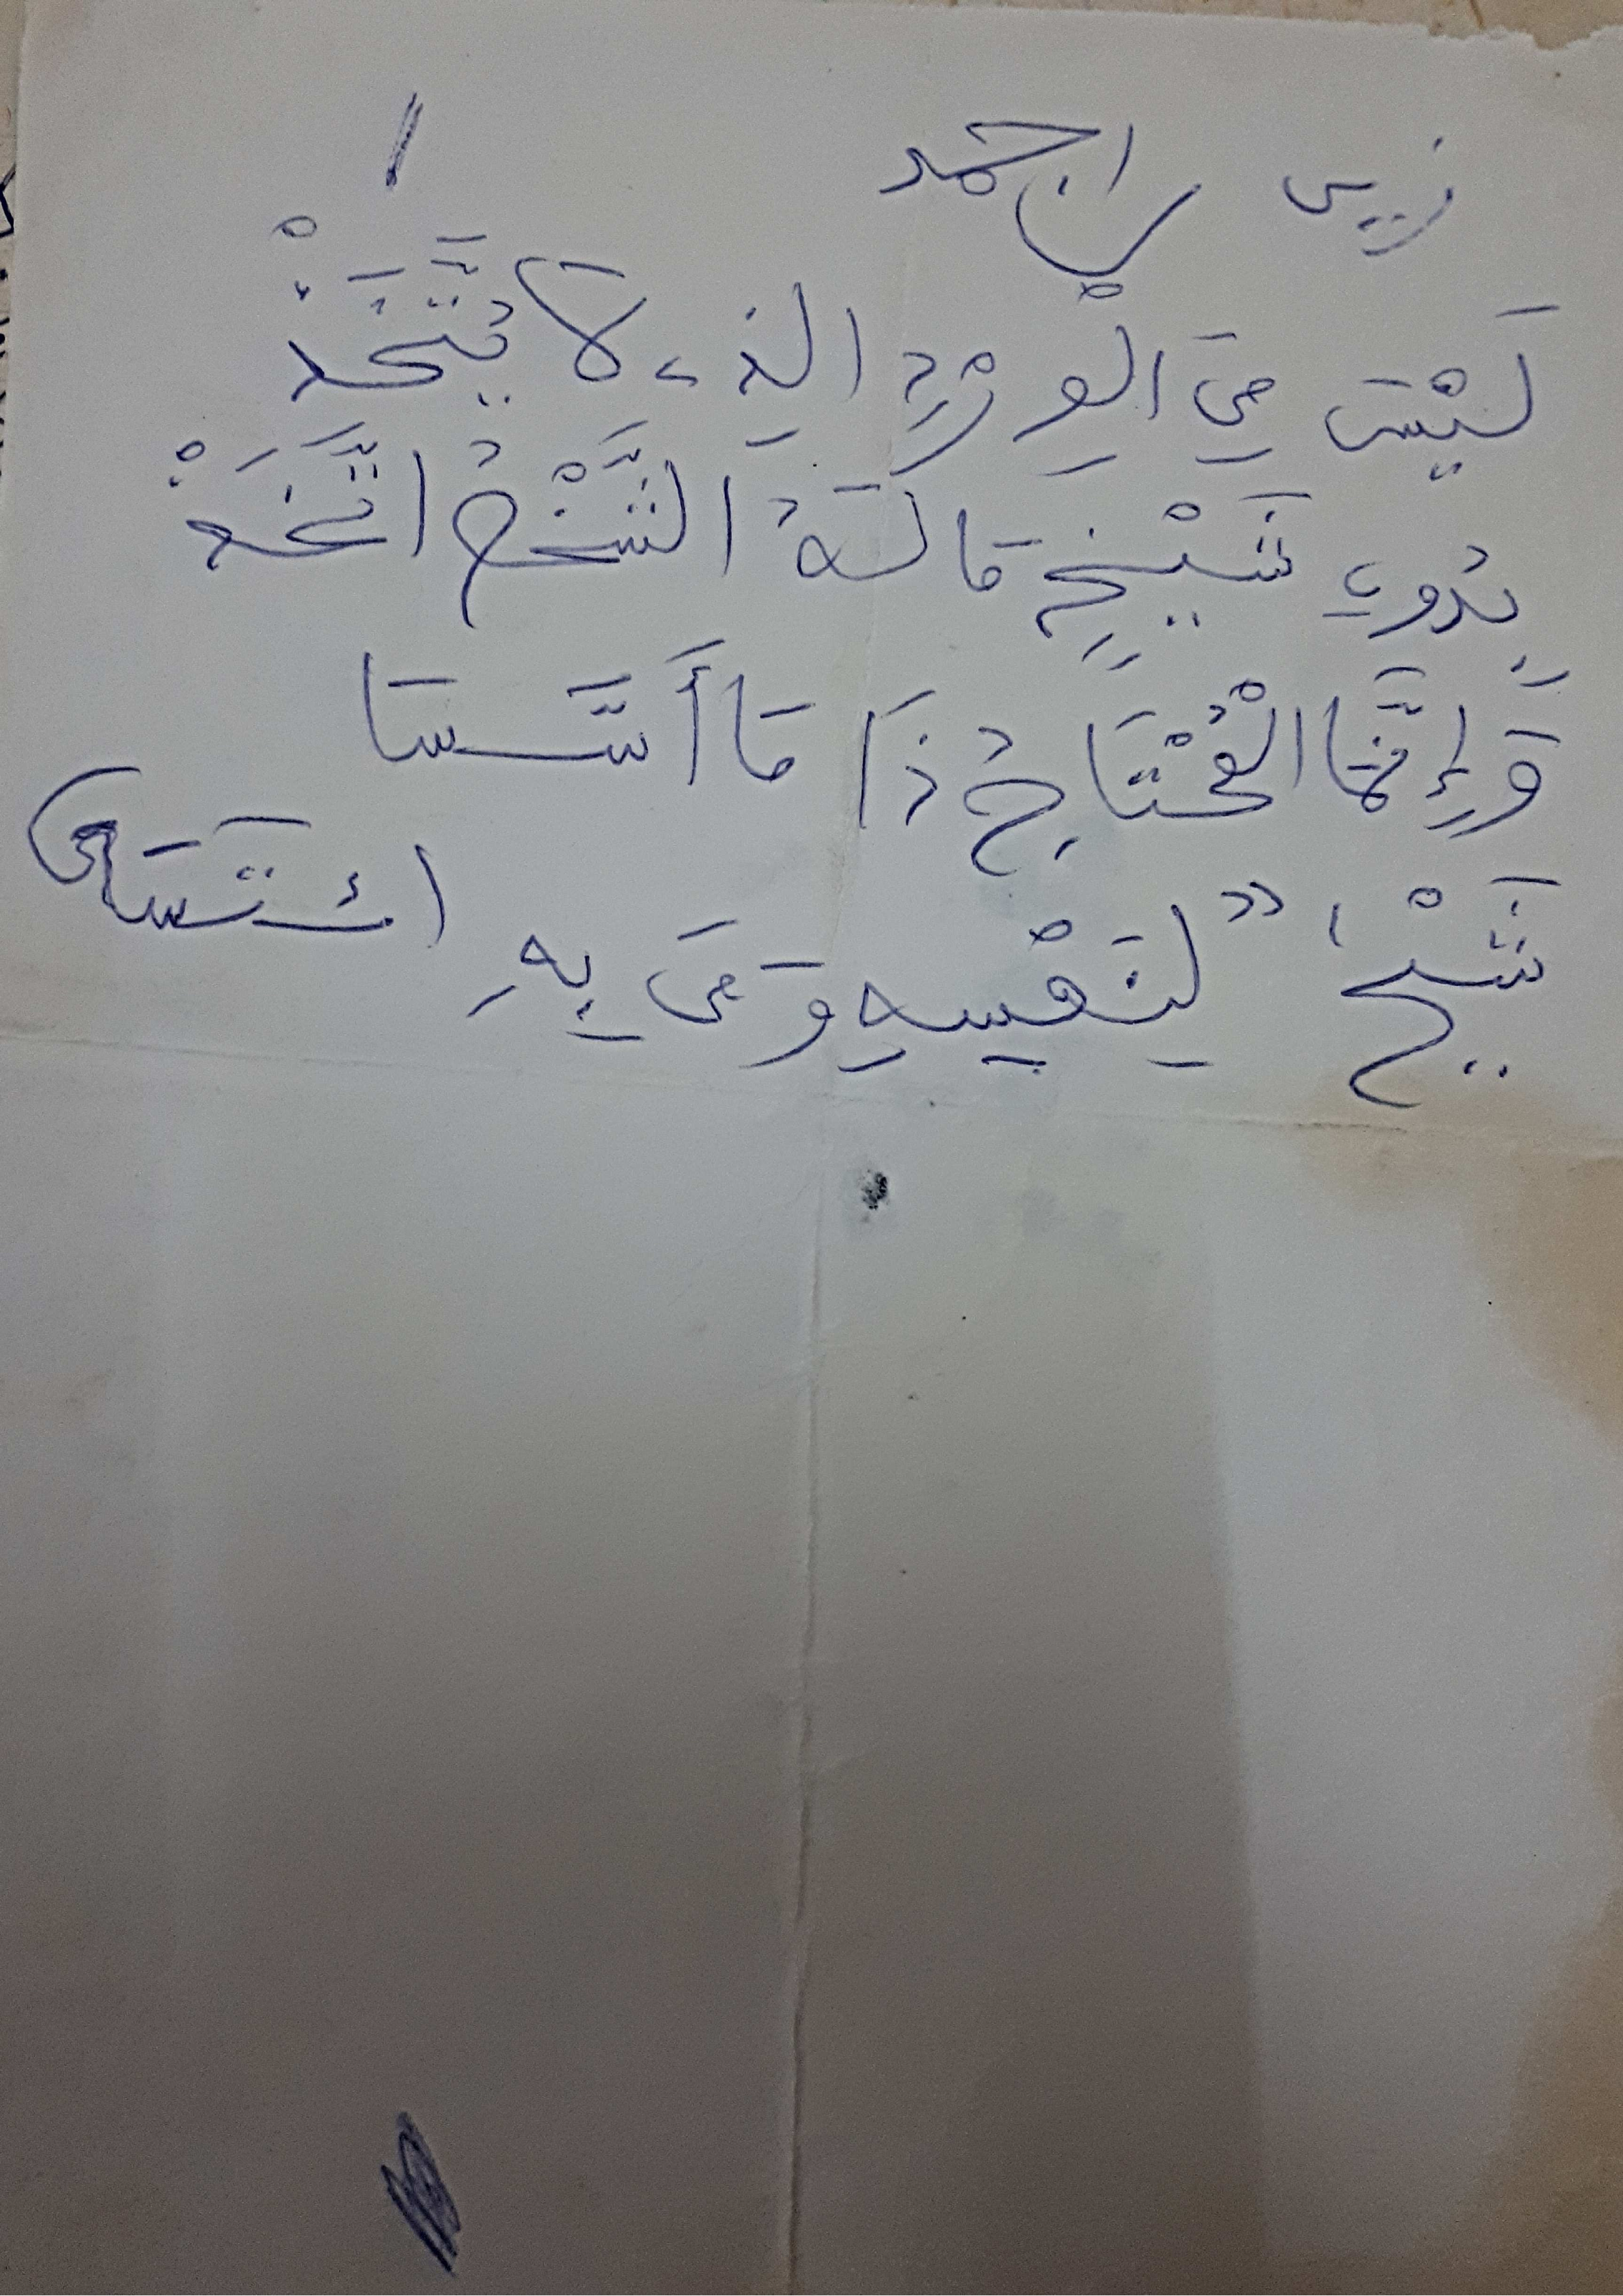 زيبن بن احمد
لَيْسَ مِنَ الْوِرْدِ الذِي لَا يُتَّخَذْ
بِدُونِ شَيْخٍ مَا لَهُ الشَّيْخُ اتَّخَذْ
وَإِنَّمَا الْمُحْتَاجُ ذَا مَا أَسَّسَا
شَيْخٌ لِنَفْسِهِ وَمَن بِهِ ائْتَسَى